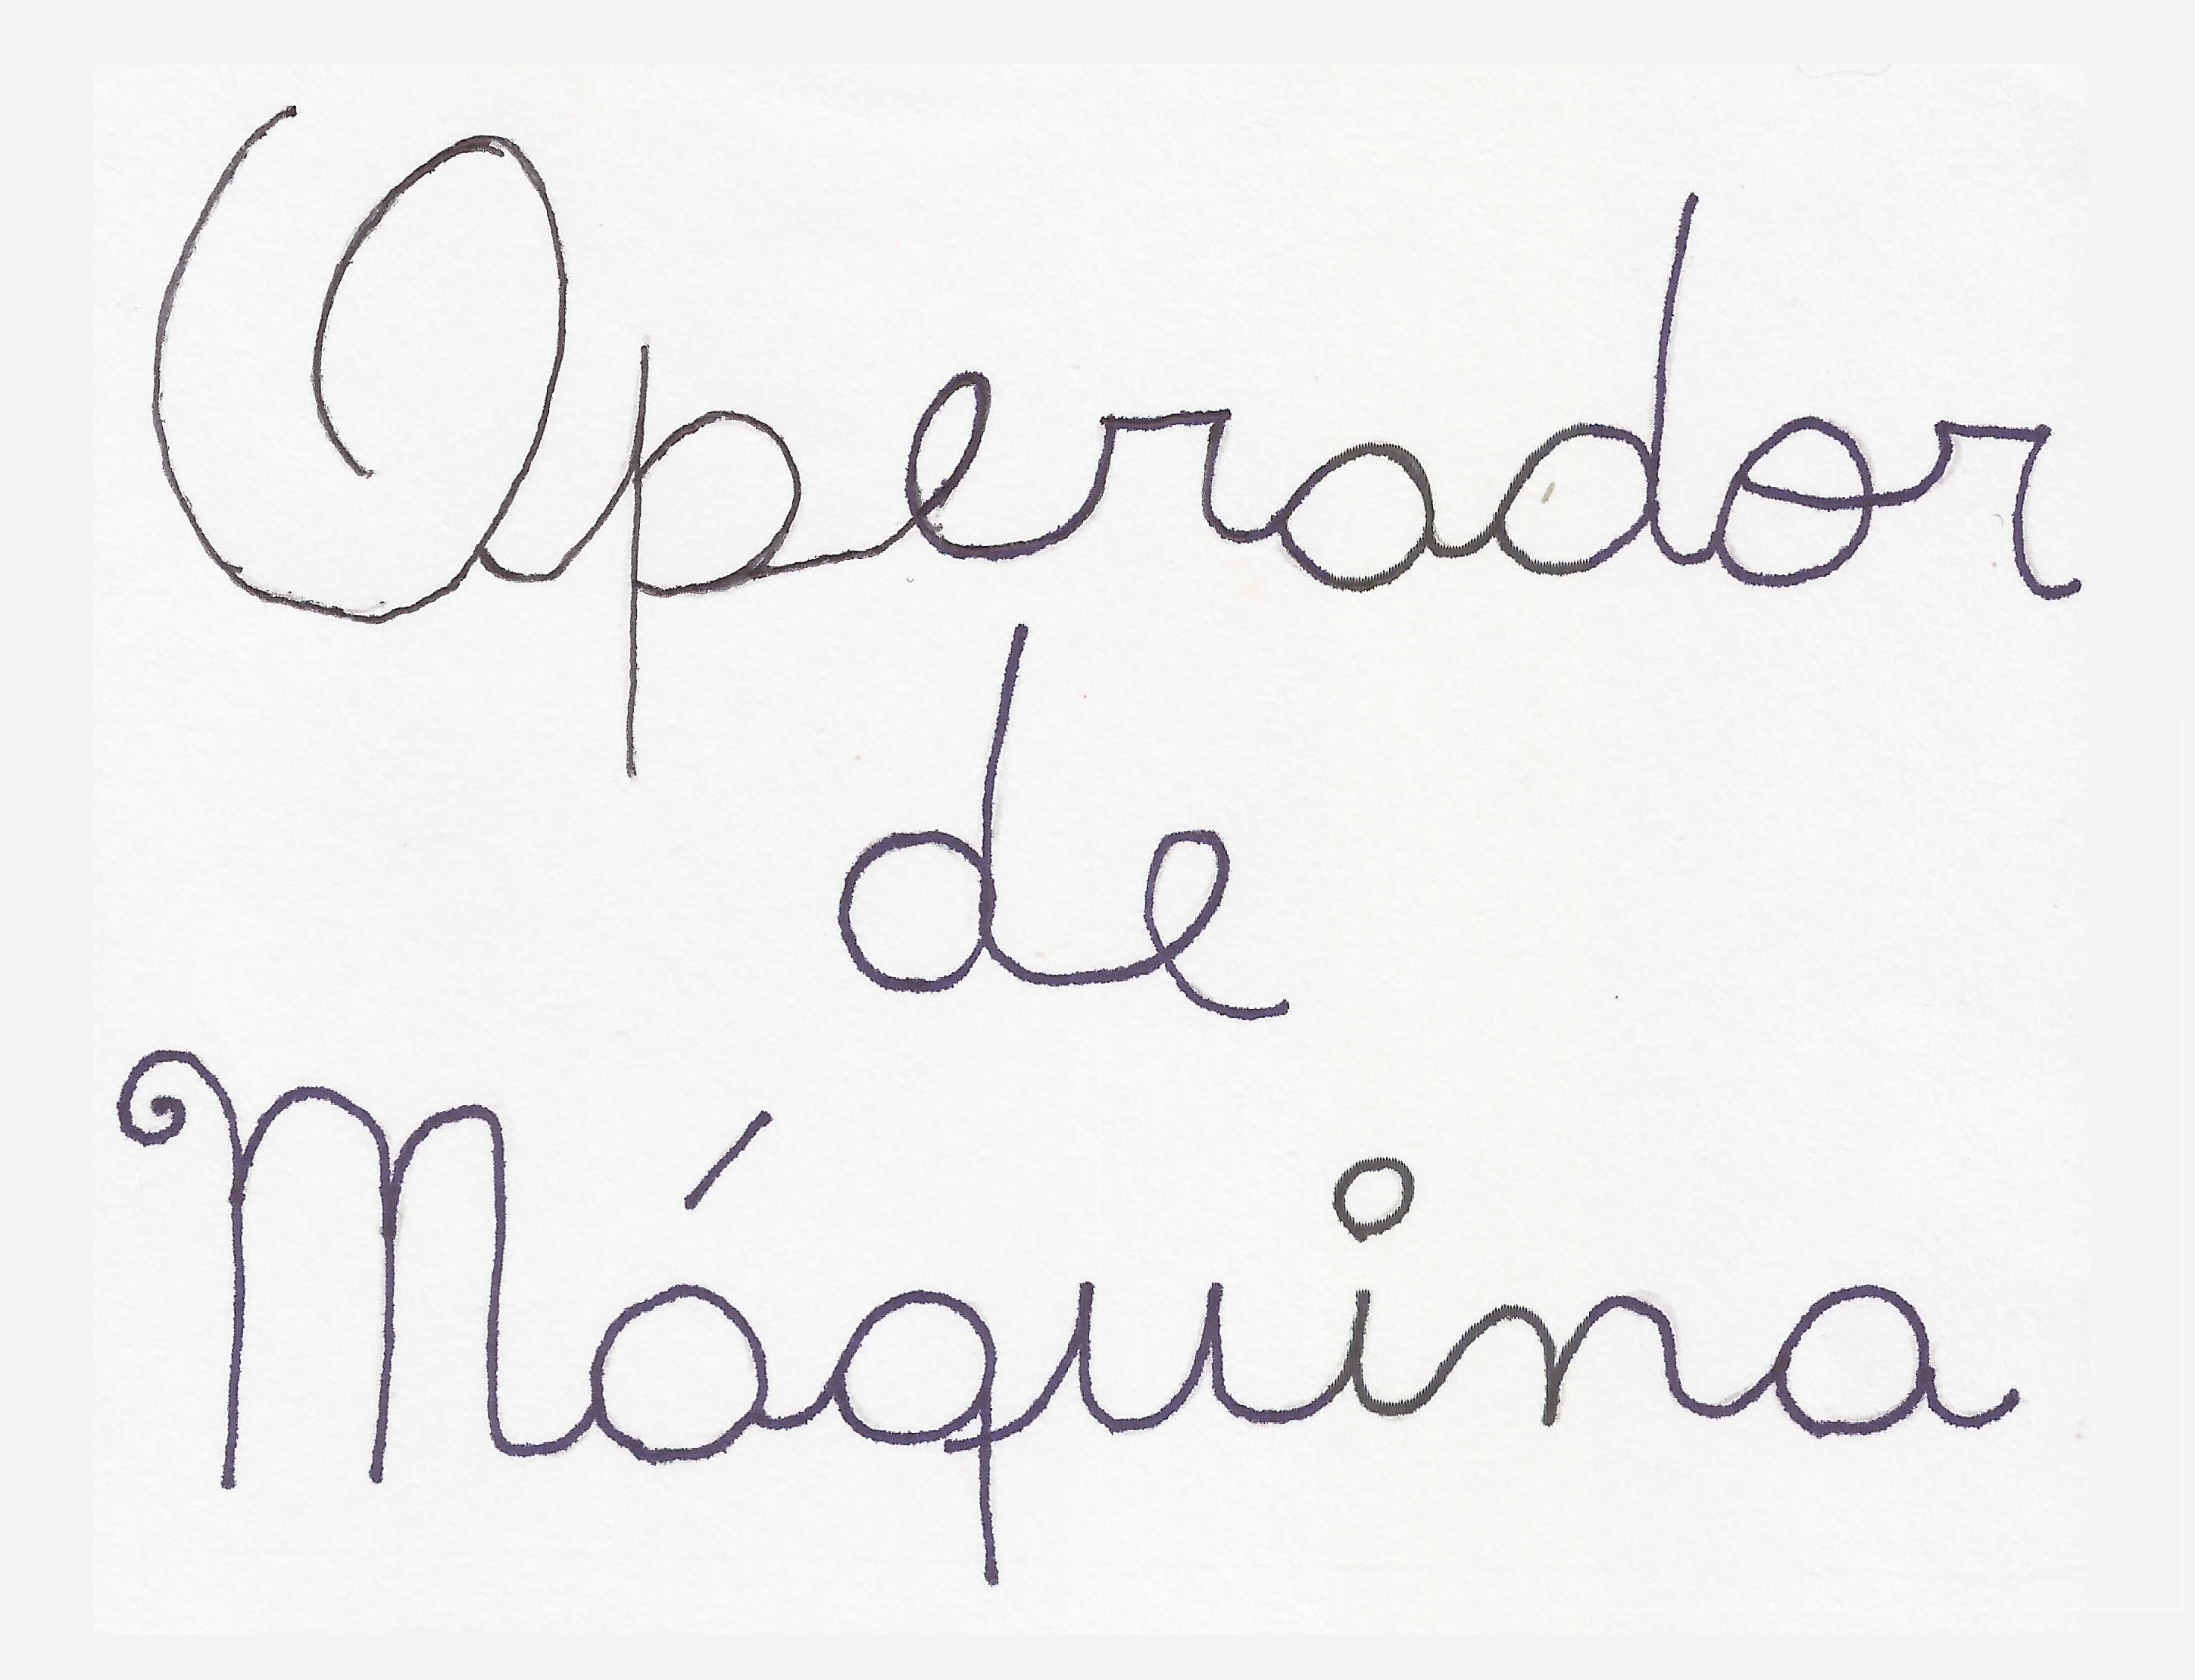 Operador
de
Máquina